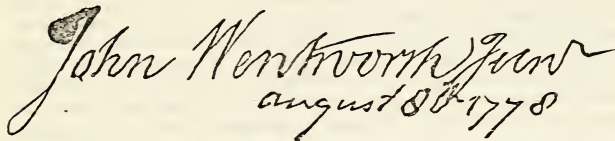 John Wentworth Junr
august 8th 1778